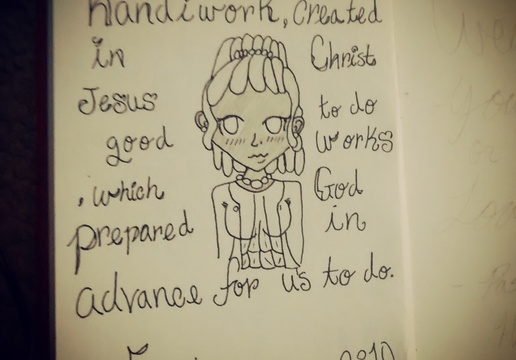 handiwork, created
in Christ
Jesus to do
good works
, which God
prepared in
advance for us to do.